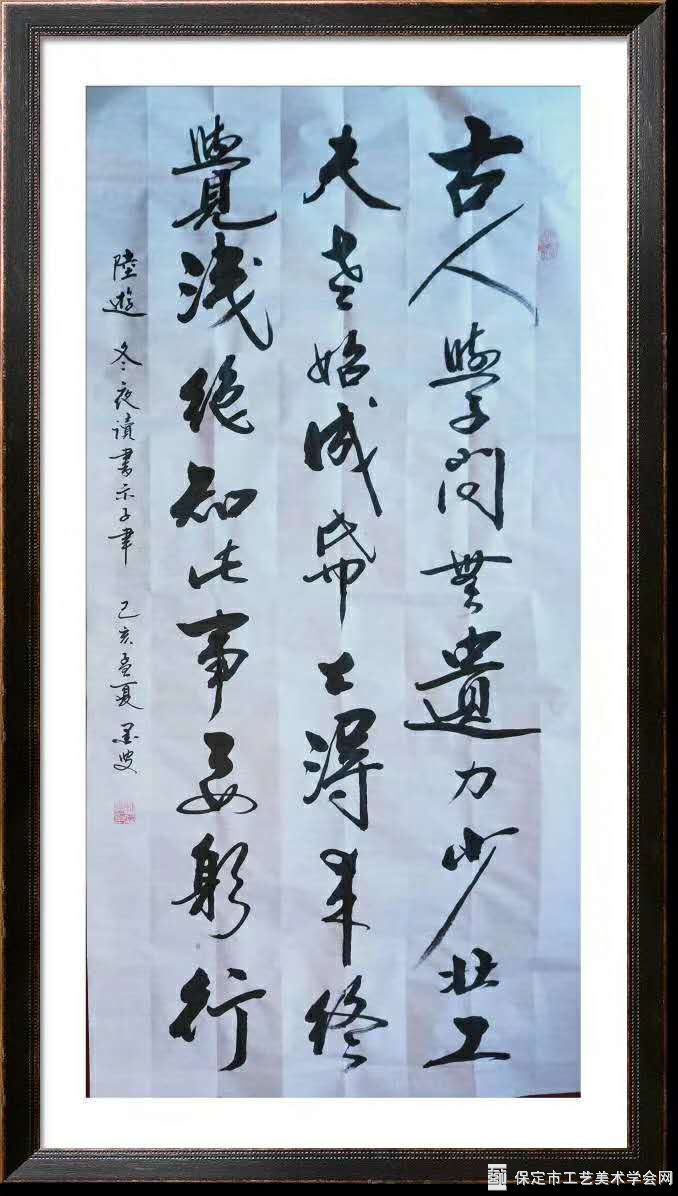 古人學問無遺力少壯工
夫老始成帋上得来終
覺淺絕知此事要躬行
陸遊冬夜讀書示子聿 己亥孟夏 墨叟
保定市工艺美术学会网